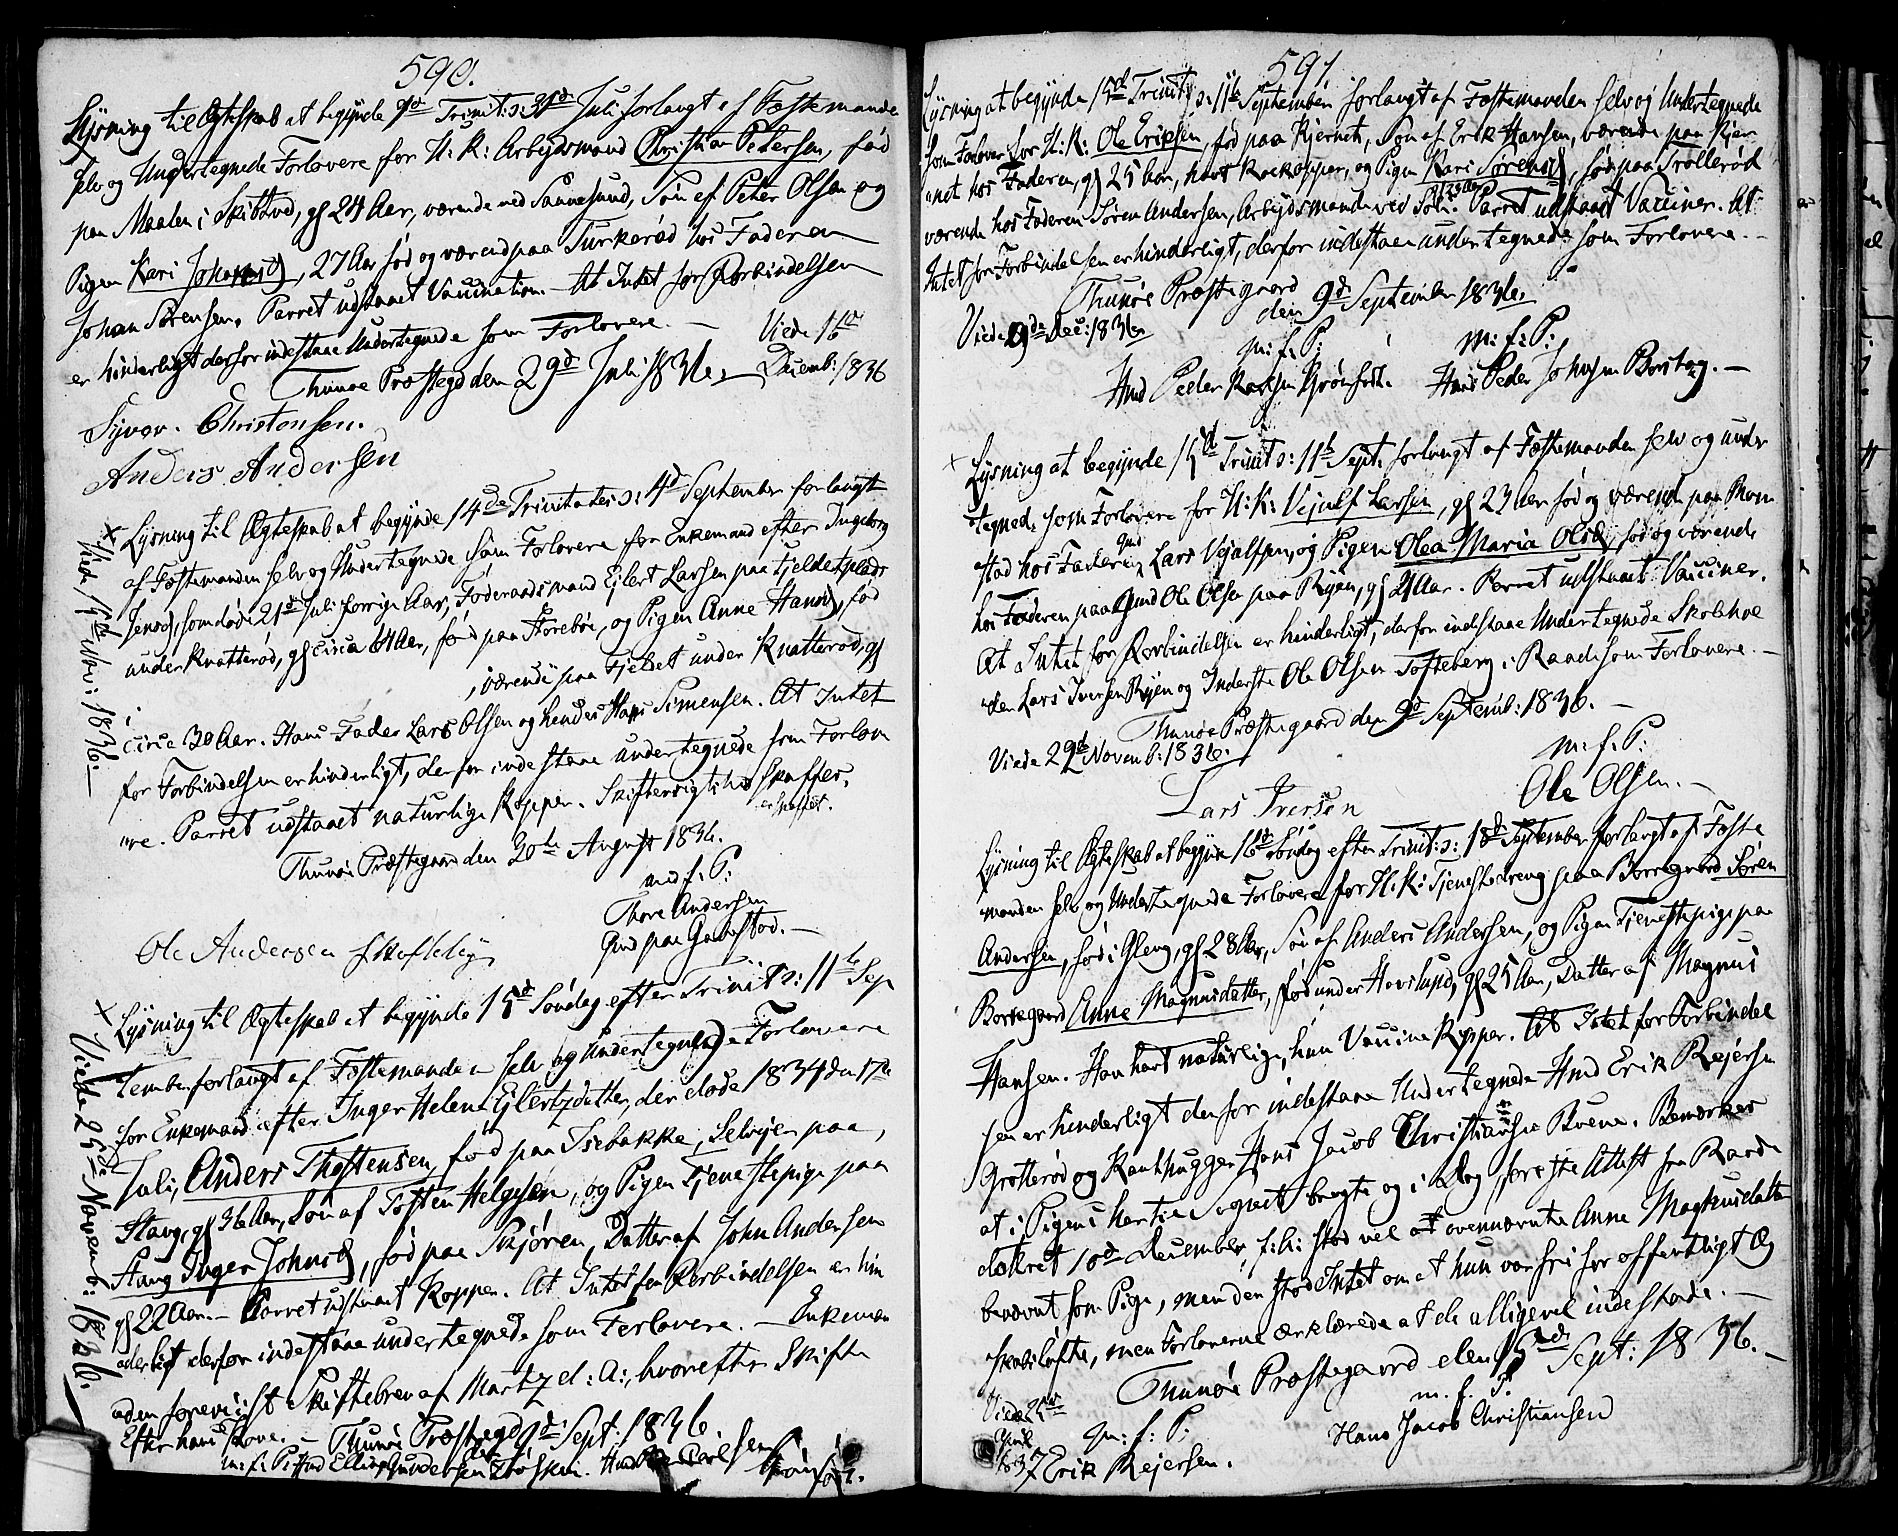 590.
Lysning til Ægteskab at begynde 9de Trinit: ɔ: 31te Juli forlangt af Fæstemanden
selv og Undertegnede Forlovere for U: K: Arbeidsmand Christian Petersen, fød
paa Maalen i Skibtved, gl 24 Aar, værende ved Sannesund, Søn af Peter Olsen og
Pigen Kari Johansd, 27 Aar fød og værende paa Turkerød hos Faderen
Johan Sørensen. Parret udstaaet Vaccination. – At Intet for Forbindelsen
er hinderligt derfor indestaae Undertegnede som Forlovere. –
Thunøe Præstegd den 29de Juli 1836.
Viede 16de
Decemb: 1836
Syver. Christensen.
Anders Andersen
× Lysning til Ægteskab at begynde 14de Trinitatis ɔ: 4de September forlangt
af Fæstemanden selv og Undertegnede som Forlovere for Enkemand efter Ingeborg
Jensd, som døde 21de Juli forrige Aar, Føderaadsmand Ejlert Larsen paa Fjeldetplads
under Knatterød, gl circa 64 Aar, fød paa Storebøe, og Pigen Anne Hansd, fød
, værende paa Fjeldet under Knatterød, gl
circa 30 Aar. Hans Fader Lars Olsen og hendes Hans Simensen. At Intet
for Forbindelsen er hinderligt, derfor indestaae undertegnede som Forlove
re. Parret udstaaet naturlige Kopper. Skifterigtighed skaffes.
er skaffet.
Thunøe Præstegaard den 30te August 1836.
Viede 19de Nov: 1836.
med f: P:
Thore Andersen
Gmd paa Gaustad. –
Ole Andersen
× Lysning til Ægteskab at begynde 15de Søndag efter Trinit ɔ: 11te Sep
tember forlangt af Fæstemanden selv og Undertegnede Forlovere
for Enkemand efter Inger Helene Ejlertzdatter, der døde 1834 den 17de
Juli, Anders Thostensen, fød paa Isebakke, Selvejer paa
Stang, gl 36 Aar, Søn af Tosten Helgesen, og Pigen Tjenestepige paa
Stang Inger Johnsd, fød paa Skjøren, Datter af John Andersen
gl 22 Aar. – Parret udstaaet Kopper. At Intet for Forbindelsen er hin
derligt derfor indestaae undertegnede som Forlovere. – Enkeman
den foreviist Skiftebrev af Martz d: A:, hvorefter Skifte
Efter hans Kone. – Thunøe Præstegd 9de Sept: 1836.
m: f: P: Hmd Elling Gundersen
Viede 25de Novemb: 1836.
591.
Lysning at begynde 15de Trinit ɔ: 11te September forlangt af Fæstemanden selv og Undertegnede
som Forlover for U: K: Ole Eriksen, fød paa Kjernet, Søn af Erik Hansen, værende paa Kjer
net hos Faderen, gl 25 Aar, havt Kokopper, og Pigen Kari Sørensd, fød paa Trollerød
værende hos Faderen Søren Andersen, Arbeidsmand ved Soli. Parret udstaaet Vacciner. At
Intet for Forbindelsen er hinderligt, derfor indestaae undertegnede som Forlovere. –
Thunøe Præstegaard
den 9de September 1836.
Viede 9de Dec: 1836
m: f: P:
m: f: P:
Hmd Peder Grønfest.
Hmd Peder Johnsen Borstag. –
× Lysning at begynde 15de Trinit ɔ: 11te Sept: forlangt af Fæstemanden selv og under
tegnede som Forlovere for U: K: Vejulf Larsen, gl 23 Aar fød og værend paa Rom
stad hos Faderen Gmd Lars Vejulfsen, og Pigen Olea Maria Olsd, fød og værende
hos Faderen paa Gmd Ole Olsen paa Ryen, gl 21 Aar. Parret udstaaet Vacciner.
At Intet for Forbindelsen er hinderligt, derfor indestaae Undertegnede Skolehol
der Lars Iversen Ryen og Inderste Ole Olsen Tofteberg i Raade som Forlovere. –
Thunøe Præstegaard den 9de Septemb: 1836. –
Viede 29de Novemb: 1836.
m: f: P:
Lars Iversen
Ole Olsen. –
Lysning til Ægteskab at begynde 16de Søndag efter Trinit: ɔ: 18de September forlangt af Fæste
manden selv og Undertegnede Forlovere for U: K: Tjenestedreng paa Borregaard Søren
Andersen, fød i Gleng, gl 28 Aar, Søn af Anders Andersen, og Pigen Tjenestepige paa
Borregaard Anne Magnusdatter, fød under Hovslund, gl 25 Aar, Datter af Magnus
Hansen. Han havt naturlige, hun Vaccine Kopper. At Intet for Forbindel
sen er hinderligt derfor indestaae Undertegnede Hmd Erik Rejersen
Grotterød og Hans Jacob Christiansen. Bemærkes
at i Pigens
dateret 10de December, f: A: stod vel at ovennævnte Anne Magnusdatter
benævnt som Pige, men den stod Intet om at hun var fri for offentligt Æg
teskabsløfte, men Forloverne erklærede at de alligevel indestode. –
Thunøe Præstegaard den 15de Sept: 1836. –
Viede 25de
April
1837
m: f: P:
Erik Rejersen.
m. f. P.
Hans Jacob Christiansen